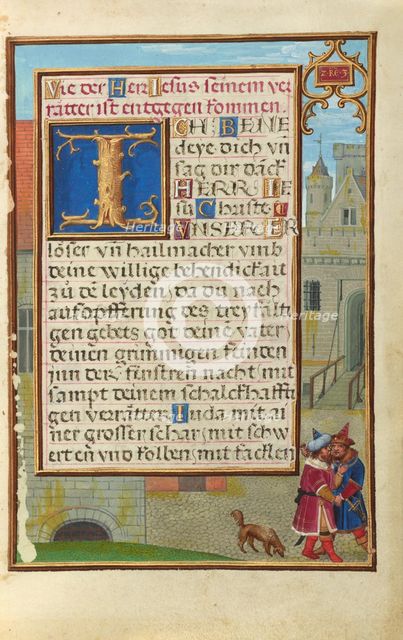 Wie der Herr Iesus seinem ver
ratter ist entgegen kommen.
2·RE·3
ICH BENE
deye dich vn̄
sag dir dāck
HERR IE
su Christe
VNSERER
löser vn̄ hailmacher vmb
deine willige behendickait
zu dē leyden, da du nach
aufopfferung des treyfaltı
gen gebets got deinē vater
deinen grim̄igen feinden
inn der finstren nacht mit
sampt deinem schalckhafftı
gen verrätter Iuda mit ai
ner grosser schar, mit schw
erten vnd kolben, mit facklen
Heritage Images